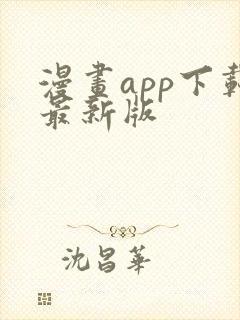 漫畫app下載
最新版
沈昌華